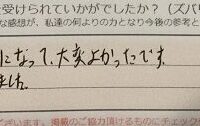 を受けられていかがでしたか？（ズバリ
な感想が、私達の何よりの力となり今後の参考と
になって、大変よかったです。
ました。
ございます。掲載のご協力頂けるものにチェック